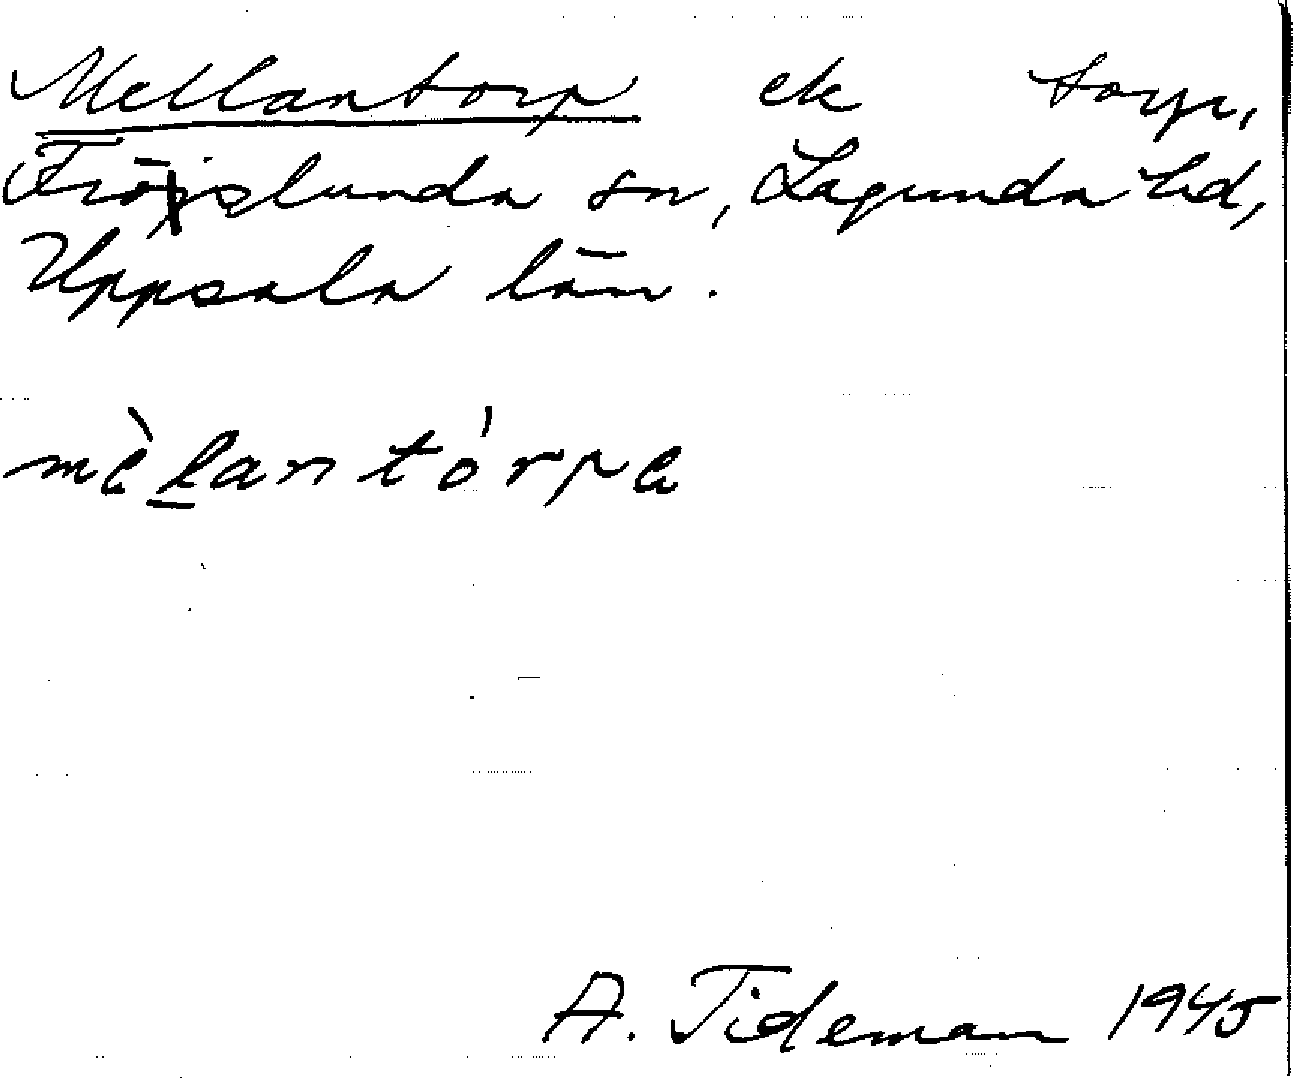 Mellantorp ek torp,
Fröslunda sn, Lagunda hd,
Uppsala län.
mèlantórpe
A. Tideman 1945